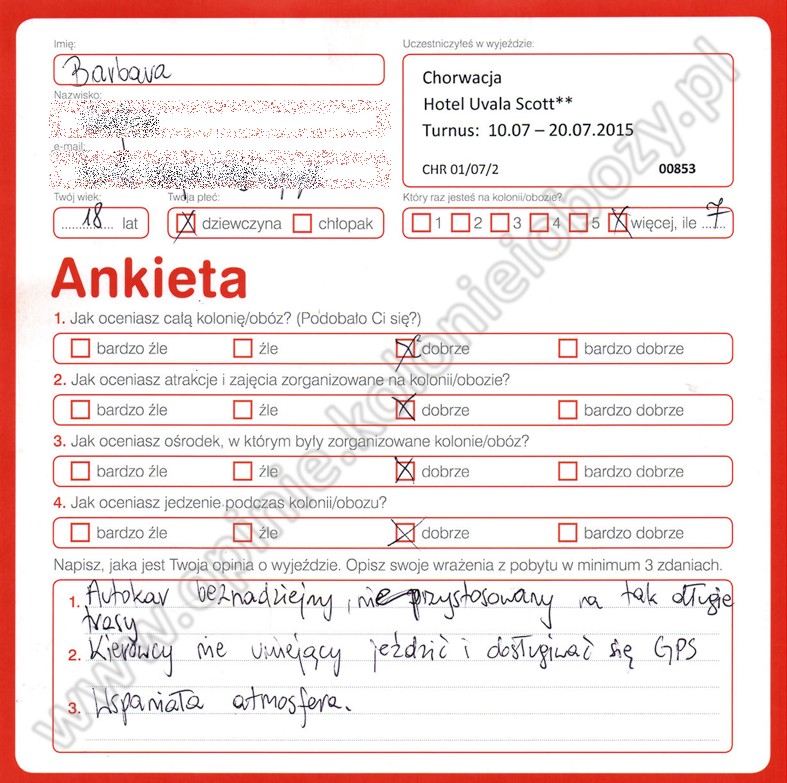 Imię:
Barbara
Uczestniczyłeś w wyjeździe:
Chorwacja
Hotel Uvala Scott**
Turnus: 10.07 – 20.07.2015
CHR 01/07/2 00853
Nazwisko:
e-mail:
Twój wiek:
18 lat
Twoja płeć:
X dziewczyna chłopak
Który raz jesteś na kolonii/obozie?
1 2 3 4 5 X więcej, ile 7
Ankieta
1. Jak oceniasz całą kolonię/obóz? (Podobało Ci się?)
bardzo źle źle X dobrze bardzo dobrze
2. Jak oceniasz atrakcje i zajęcia zorganizowane na kolonii/obozie?
bardzo źle źle X dobrze bardzo dobrze
3. Jak oceniasz ośrodek, w którym były zorganizowane kolonie/obóz?
bardzo źle źle X dobrze bardzo dobrze
4. Jak oceniasz jedzenie podczas kolonii/obozu?
bardzo źle źle X dobrze bardzo dobrze
Napisz, jaka jest Twoja opinia o wyjeździe. Opisz swoje wrażenia z pobytu w minimum 3 zdaniach.
1. Autokar beznadziejny, nie przystosowany na tak długie
trasy
2. Kierowcy nie umiejący jeździć i dosługiwać się GPS
3. Wspaniała atmosfera.
www.opinie.kolonieiobozy.pl